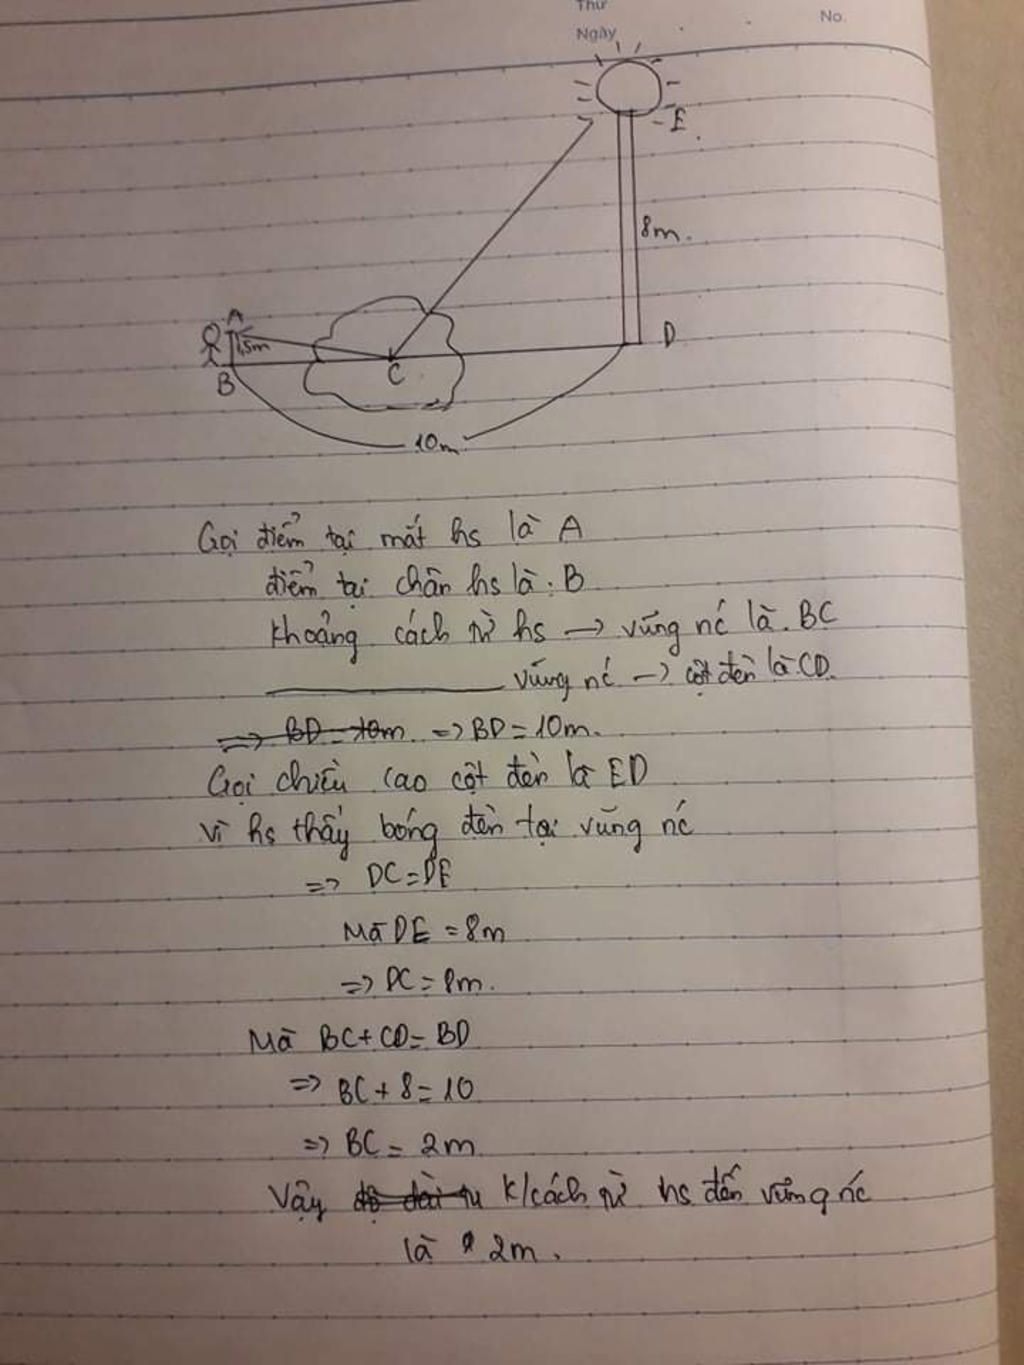 Thứ
Ngày
No.
E
8m.
A
1,5m
D
B
C
10m
Gọi điểm tại mắt hs là A
điểm tại chân hs là: B
Khoảng cách từ hs → vũng nc là BC
vũng nc → cột đèn là CD.
=> BD = 10m => BD = 10m.
Gọi chiều cao cột đèn là ED
Vì hs thấy bóng đèn tại vũng nc
=> DC = DE
Mà DE = 8m
=> DC = 8m.
Mà BC + CD = BD
=> BC + 8 = 10
=> BC = 2m
Vậy độ dài từ k/cách từ hs đến vũng nc
là 2m.